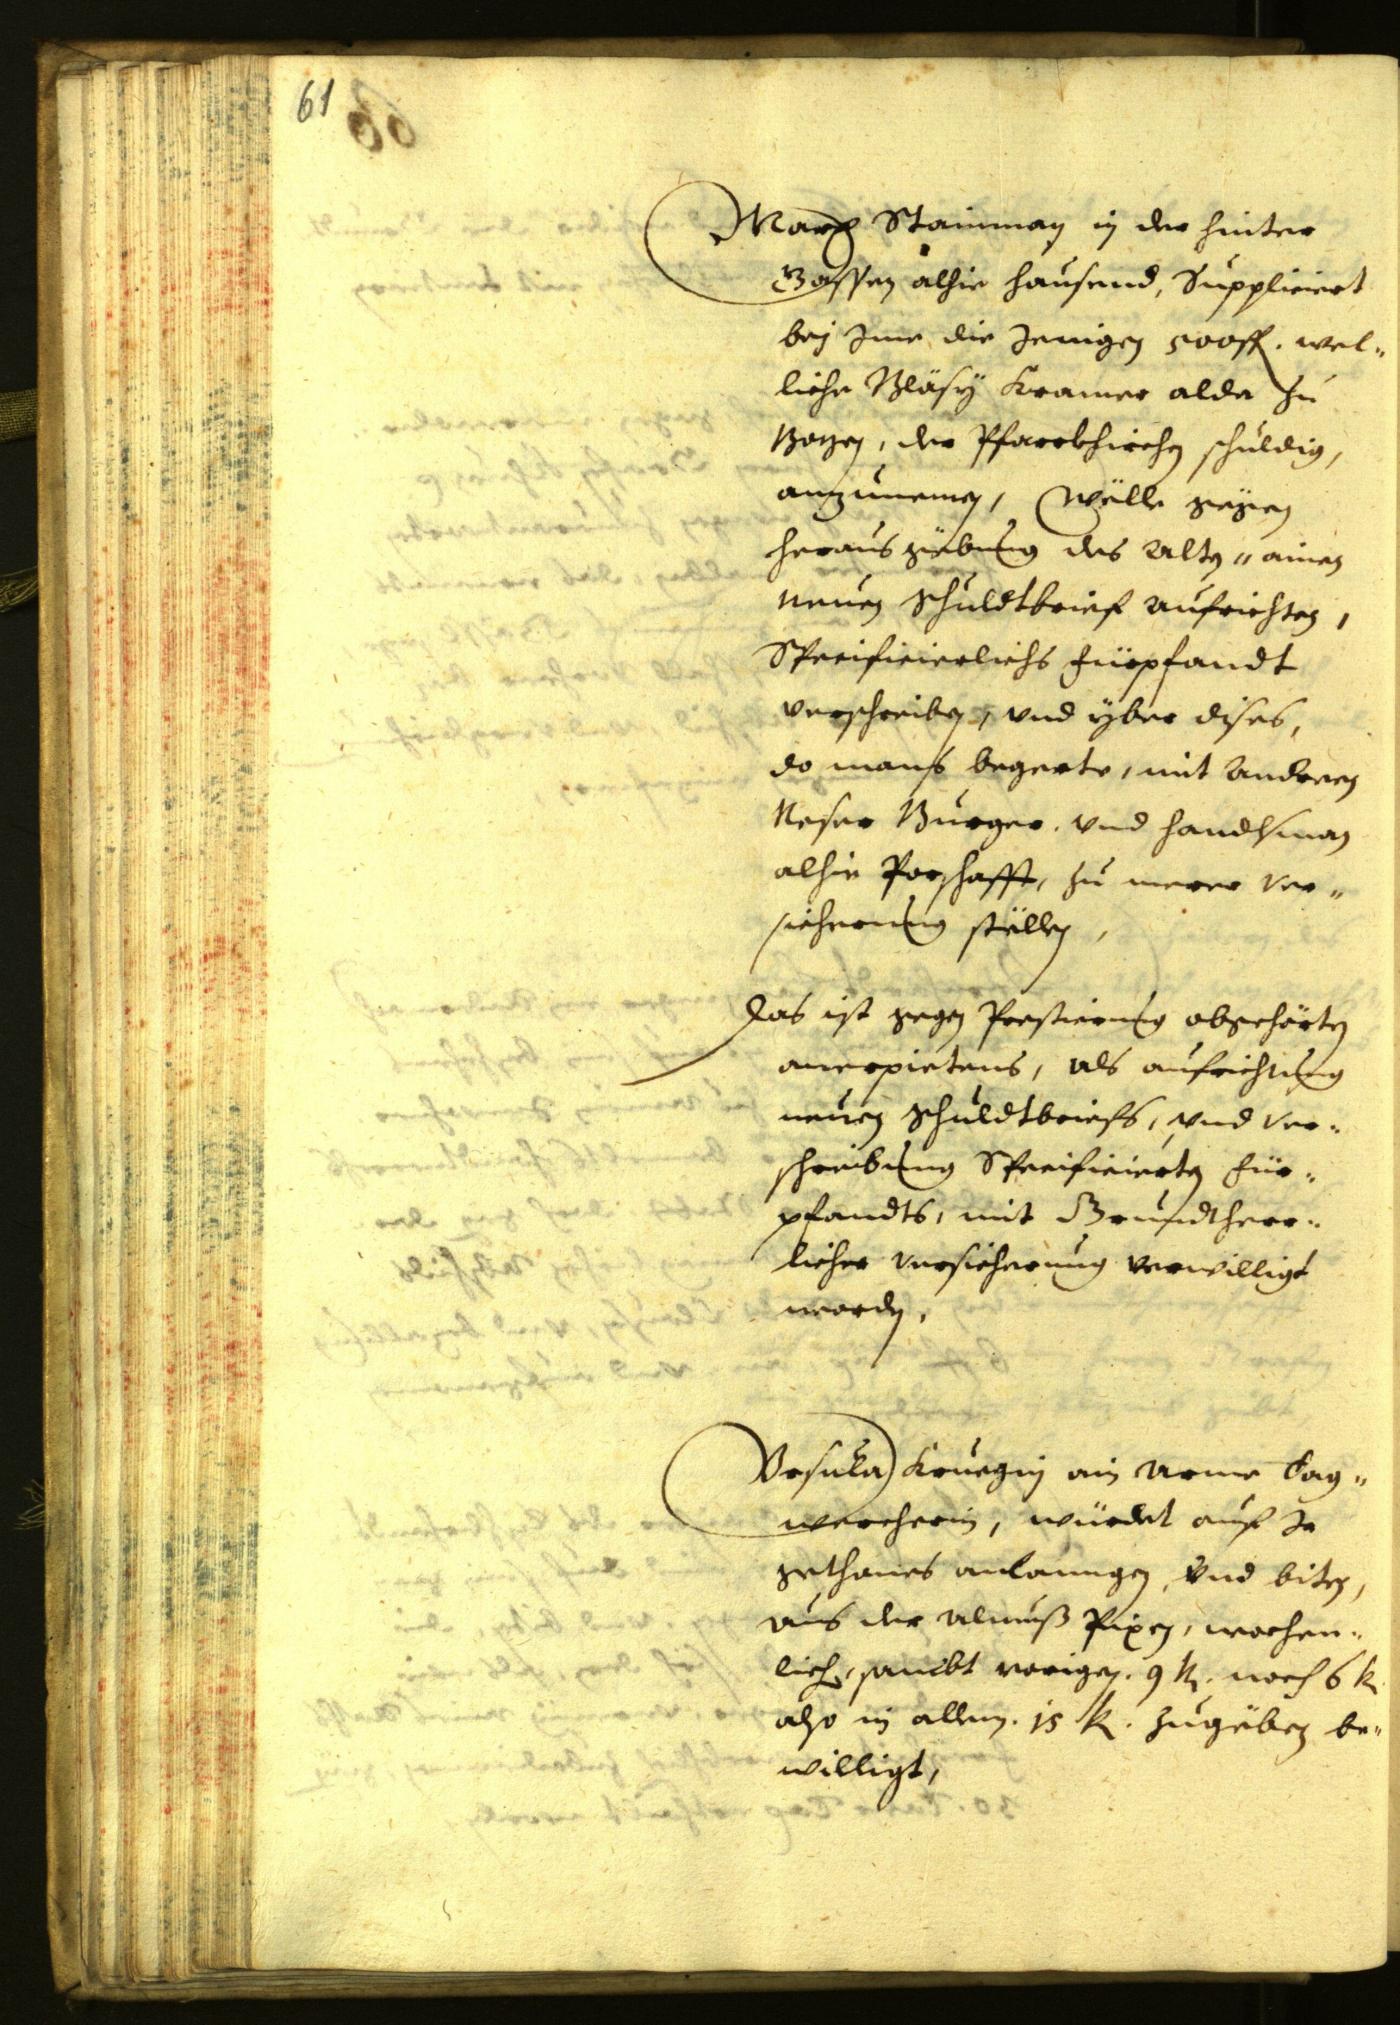 61
Marx Stainman in der hinter
Gassen alhie hausend, Suppliciert
bey Ime die Jenigen 500 fl. wel-
liche Bläsy Kramer alda zu
Bozen, der Pfarrkhirchen schuldig,
anzunemen, Wölle gegen
herausgebung des Alten ainen
Neuen schuldtbrief aufrichten,
Specificierlichs fürpfandt
verschreiben, vnd yber dises,
do mans begerte, mit Andreen
Neser Burger vnd handlsman
alhie Porschafft, zu merer ver-
sicherung stellen,
Das ist gegen Prestierung obgehörten
anerpietens, als aufrichtung
neuen schuldtbriefs, vnd ver-
schreibung Specificierten für-
pfandts, mit Grundtherr-
licher versicherung verwilligt
worden.
Vrsula Kruegin ain Arme Tag-
wercherin, würdet auf Ir
gethanes anlanngen vnd biten,
aus der Almueß Pixen, wochen-
lich, sambt vorigen 9 k. noch 6 k.
also in allem 15 k. zugeben be-
willigt,